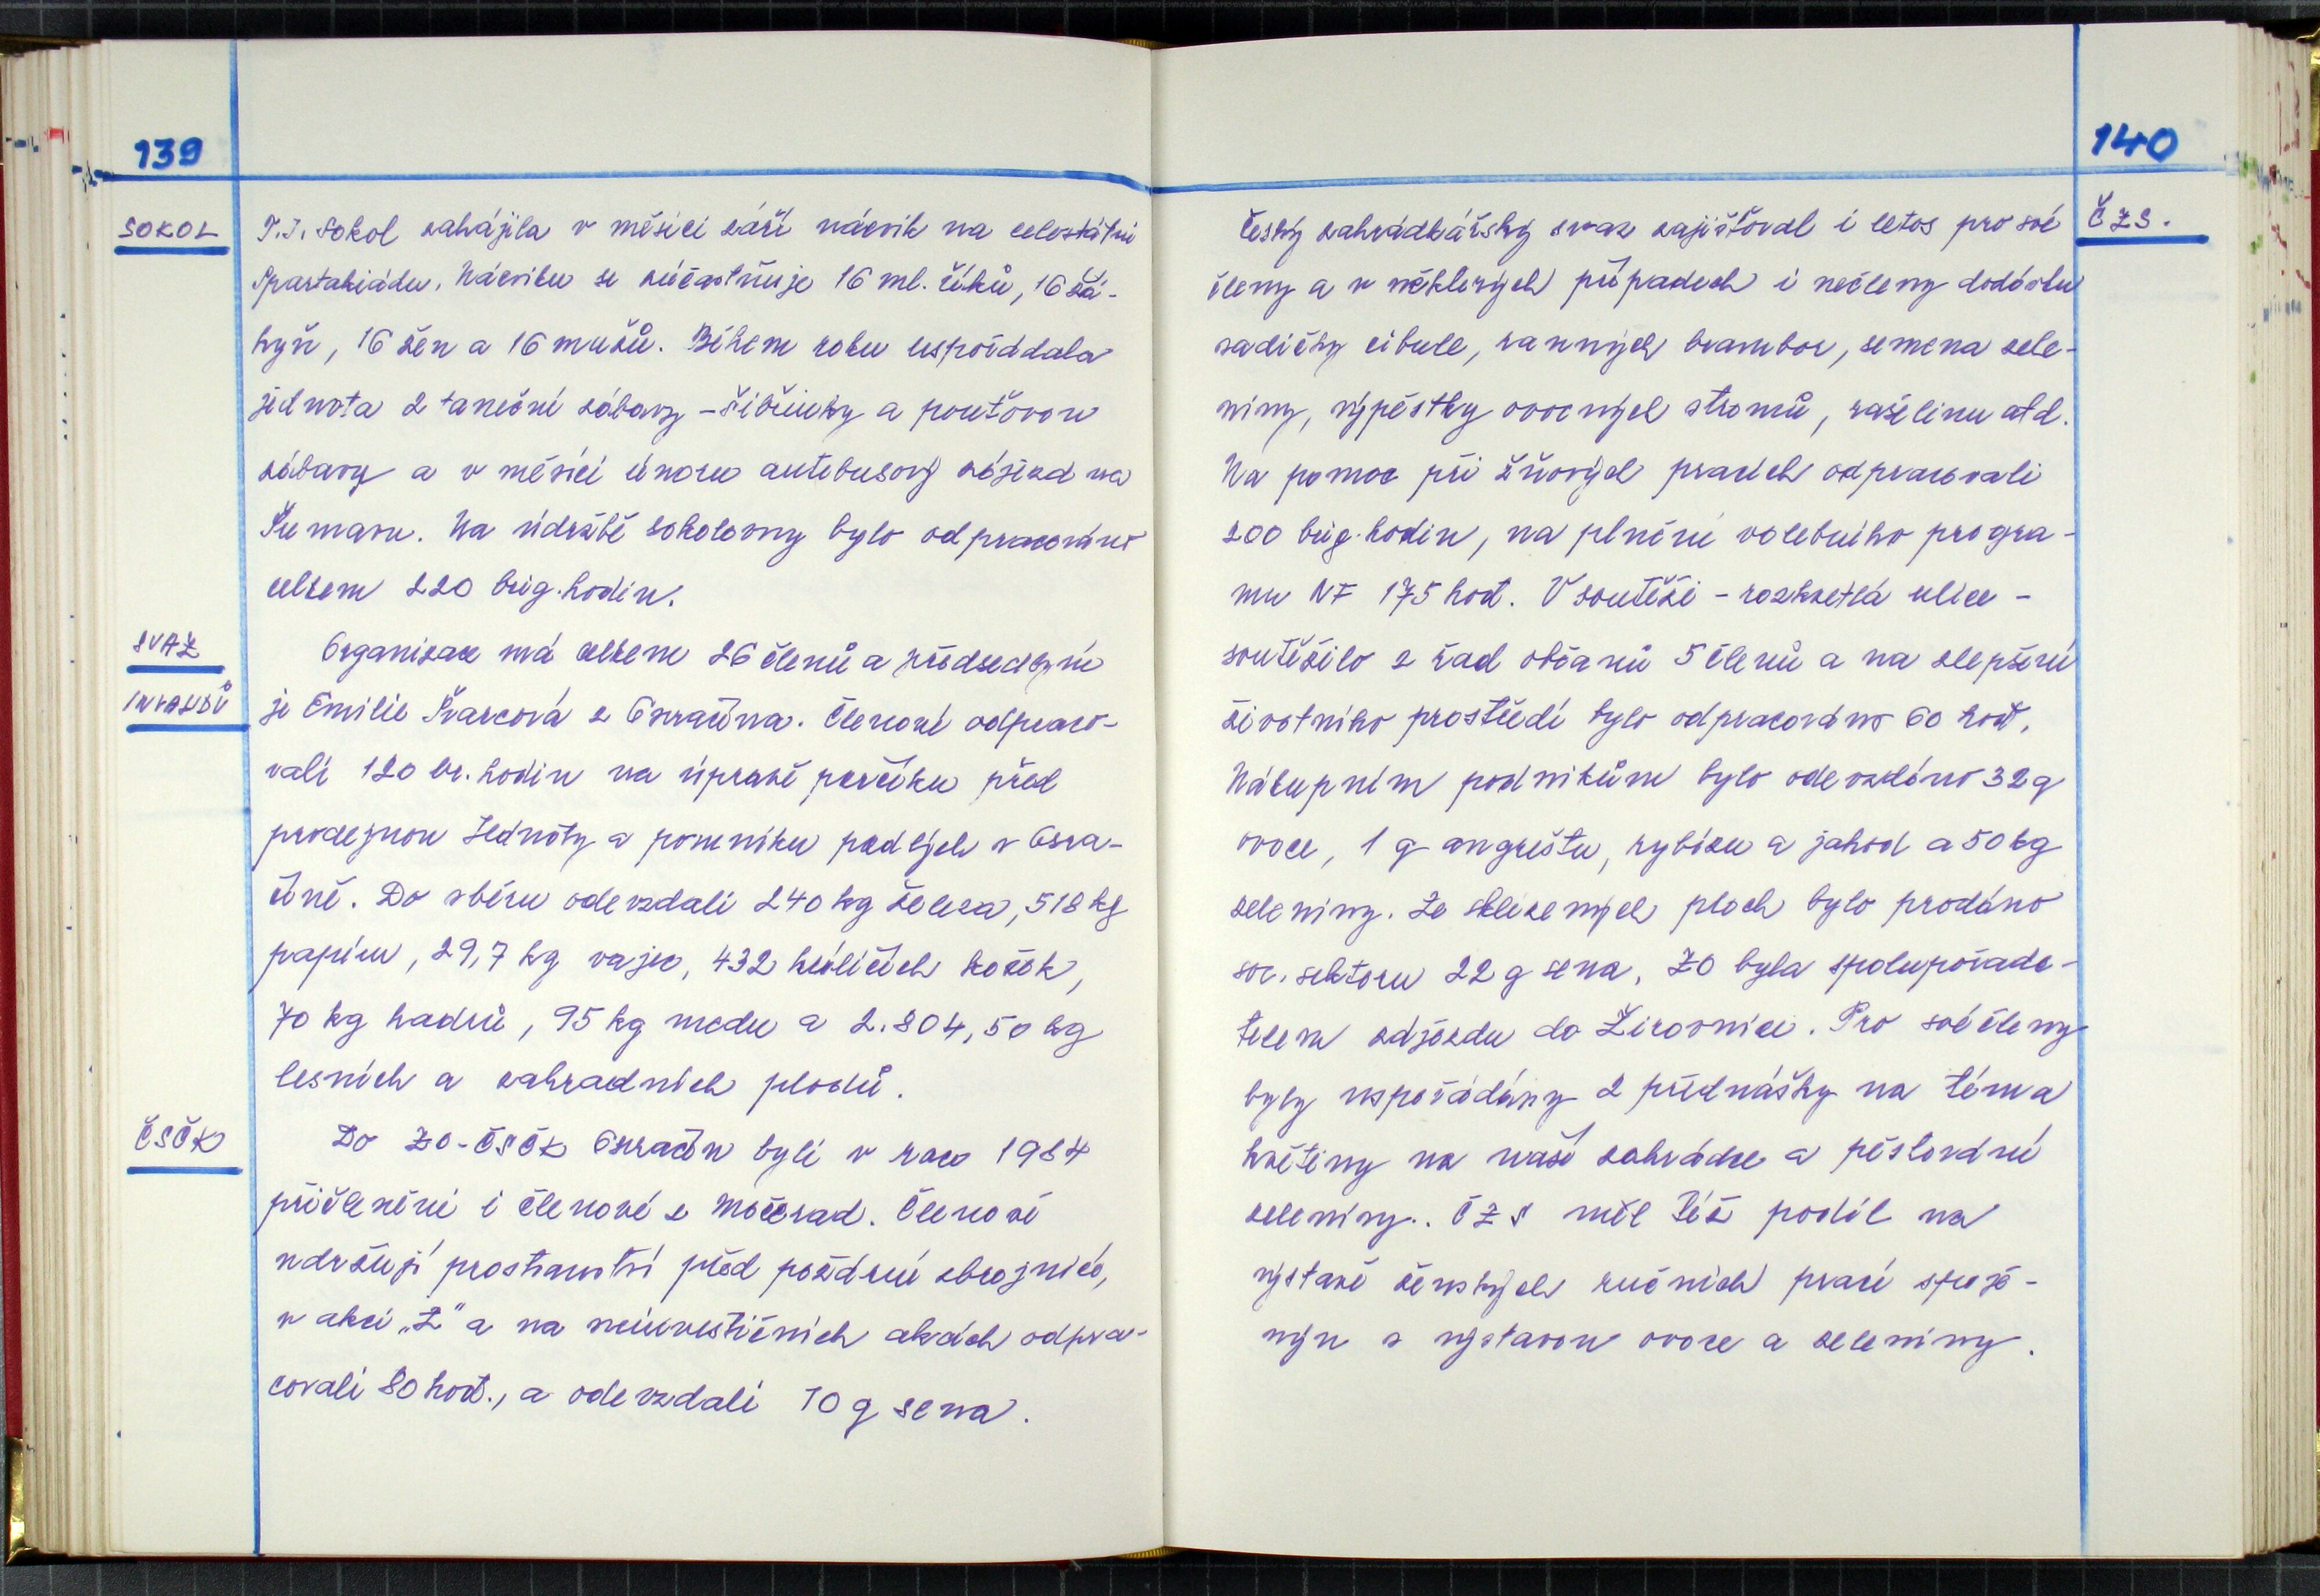 139
SOKOL
T.J. Sokol zahájila v měsíci září nácvik na celostátní
Spartakiádu. Nácviku se zúčastňuje 16 ml. žáků, 16 žá-
kyň, 16 žen a 16 mužů. Během roku uspořádala
jednota 2 taneční zábavy - Šibřinky a pouťovou
zábavy a v měsíci únoru autobusový zájezd na
Šumavu. Na údržbě sokolovny bylo odpracováno
celkem 220 brig. hodin.
SVAZ
INVALIDŮ
Organizace má celkem 26 členů a předsedkyní
je Emilie Švarcová z Osračína. Členové odpraco-
vali 120 br. hodin na úpravě parčíku před
prodejnou Jednoty a pomníku padlých v Osra-
číně. Do sběru odevzdali 240 kg železa, 518 kg
papíru, 29,7 kg vajec, 432 králičích kožek,
70 kg hadrů, 95 kg medu a 2.804,50 kg
lesních a zahradních plodů.
ČSČK
Do ZO-ČSČK Osračín byli v roce 1984
přičleněni i členové z Močerad. Členové
udržují prostranství před požární zbrojnicí,
v akci „Z" a na neinvestičních akcích odpra-
covali 80 hod., a odevzdali 10 q sena.
140
ČZS.
Český zahrádkářský svaz zajišťoval i letos pro své
členy a v některých případech i nečleny dodávku
sadičky cibule, ranných brambor, semena zele-
niny, výpěstky ovocných stromů, rašelinu atd.
Na pomoc při žňových pracích odpracovali
200 brig. hodin, na plnění volebního progra-
mu NF 175 hod. V soutěži - rozkvetlá ulice -
soutěžilo z řad občanů 5 členů a na zlepšení
životního prostředí bylo odpracováno 60 hod.
Nákupním podnikům bylo odevzdáno 32 q
ovoce, 1 q angreštu, rybízu a jahod a 50 kg
zeleniny. Ze sklizených ploch bylo prodáno
soc. sektoru 22 q sena. ZO byla spolupořada-
telem zájezdu do Žirovnice. Pro své členy
byly uspořádány 2 přednášky na téma
květiny na naší zahrádce a pěstování
zeleniny.. ČZS měl též podíl na
výstavě ženských ručních prací spoje-
nýn s výstavou ovoce a zeleniny.